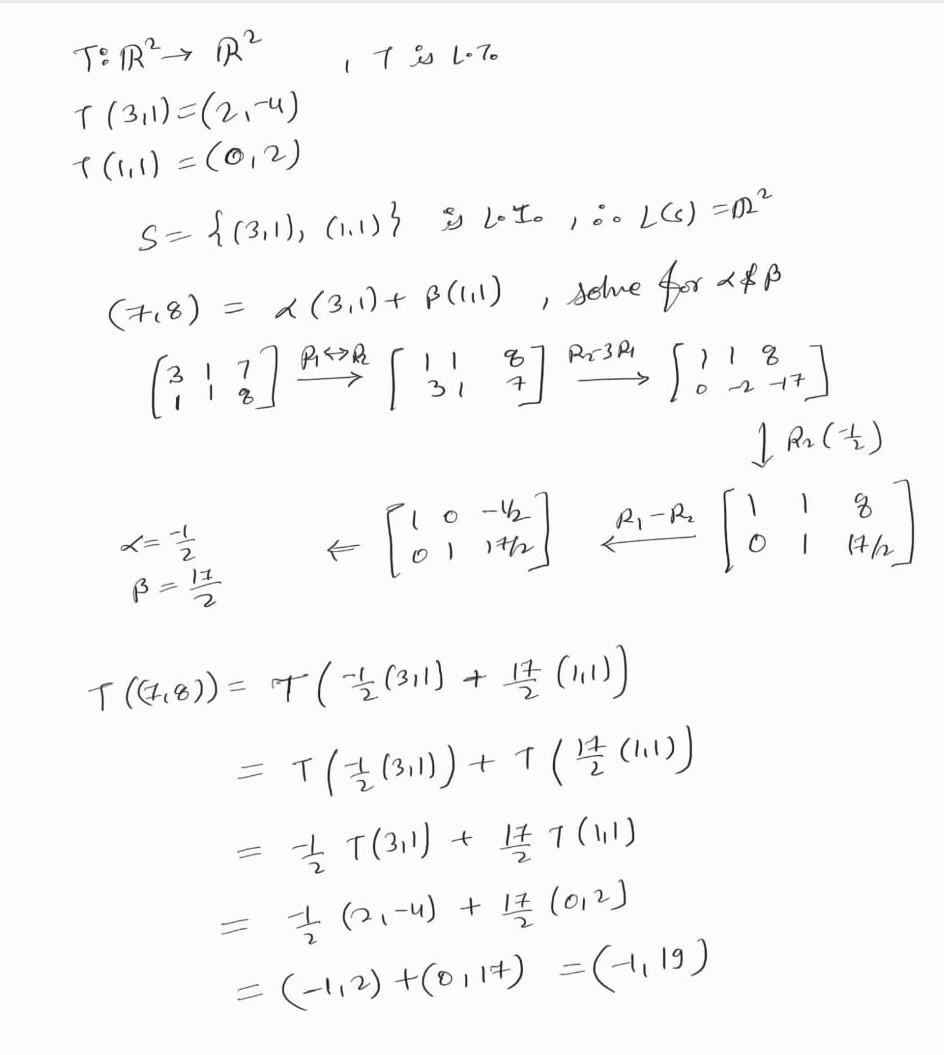 T: ℝ² → ℝ² , T is L.T.
T(3,1) = (2,-4)
T(1,1) = (0,2)
S = {(3,1), (1,1)} is L.I. , ∴ L(S) = ℝ²
(7,8) = α(3,1) + β(1,1) , solve for α & β
[3 1 7; 1 1 8] R₁↔R₂ → [1 1 8; 3 1 7] R₂-3R₁ → [1 1 8; 0 -2 -17]
↓ R₂(-1/2)
α = -1/2 β = 17/2 ⇐ [1 0 -1/2; 0 1 17/2] R₁-R₂ ← [1 1 8; 0 1 17/2]
T((7,8)) = T(-1/2 (3,1) + 17/2 (1,1))
= T(-1/2 (3,1)) + T(17/2 (1,1))
= -1/2 T(3,1) + 17/2 T(1,1)
= -1/2 (2,-4) + 17/2 (0,2)
= (-1,2) + (0,17) = (-1,19)